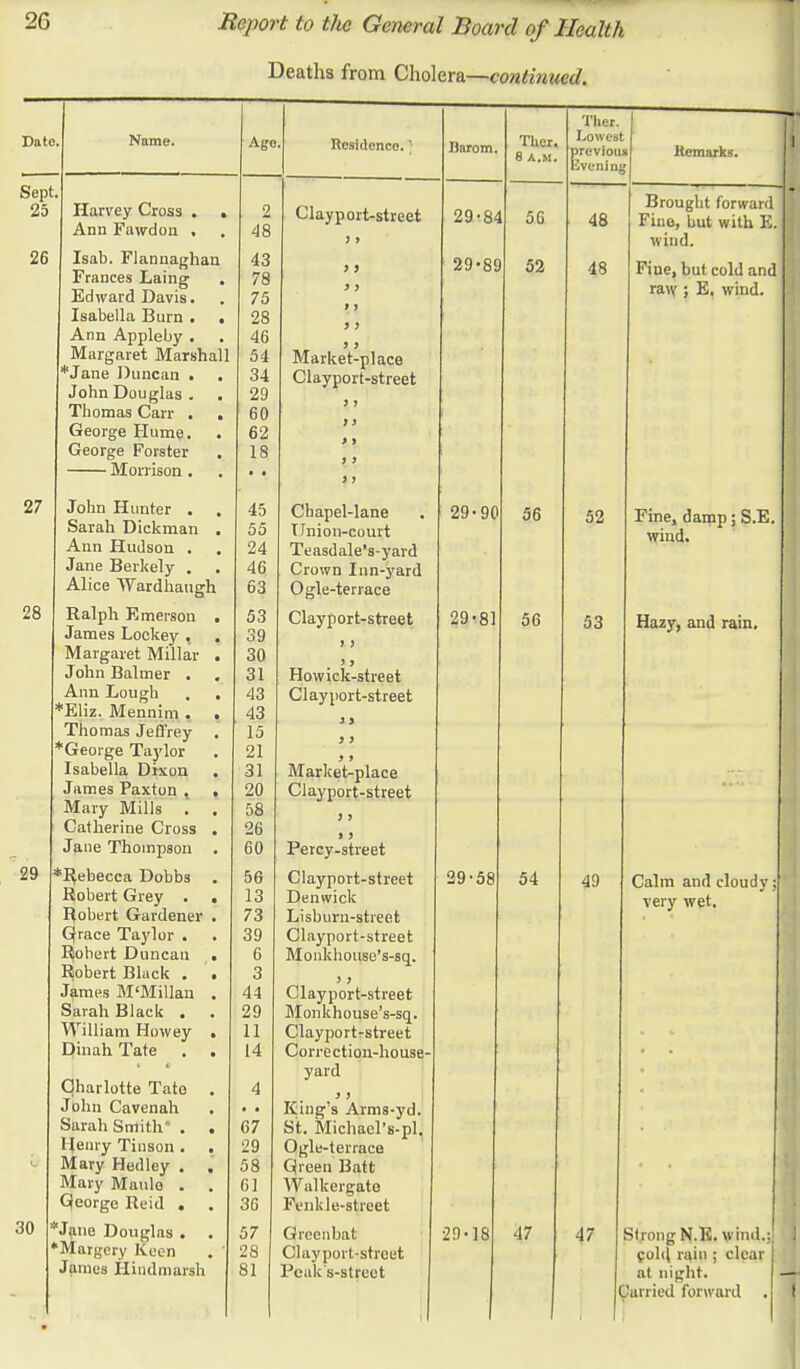 26 Report to the General Board of Health
Deaths from Cholera—continued.
Date. Name. Age. Residence. Barom. Ther. 8 A.M. Ther. Lowest previous Evening Remarks.
Sept.
25 Harvey Cross . . 2 Clayport-street 29·84 56 48 Brought forward
Ann Fawdon . . 48 ,, Fine, but with E. wind.
26 Isab. Flannaghan 43 ,, 29·89 52 48 Fine, but cold and
Frances Laing . 78 ,, raw ; E. wind.
Edward Davis. . 75 ,,
Isabella Burn . . 28 ,,
Ann Appleby . . 46 ,,
Margaret Marshall 54 Market-place
*Jane Duncan . . 34 Clayport-street
John Douglas . . 29 ,,
Thomas Carr . . 60 ,,
George Hume. . 62 ,,
George Forster . 18 ,,
—— Morrison . . . . ,,
27 John Hunter . . 45 Chapel-lane . 29·90 56 52 Fine, damp ; S.E.
Sarah Dickman . 55 Union-court wind.
Ann Hudson . . 24 Teasdale's-yard
Jane Berkely . . 46 Crown Inn-yard
Alice Wardhaugh 63 Ogle-terrace
28 Ralph Emerson . 53 Clayport-street 29·81 56 53 Hazy, and rain.
James Lockey . . 39 ,,
Margaret Millar . 30 ,,
John Balmer . . 31 Howick-street
Ann Lough . . 43 Clayport-street
*Eliz. Mennim . . 43 ,,
Thomas Jeffrey . 15 ,,
*George Taylor . 21 ,,
Isabella Dixon . 31 Market-place
James Paxton . . 20 Clayport-street
Mary Mills . . 58 ,,
Catherine Cross . 26 ,,
Jane Thompson . 60 Percy-street
29 *Rebecca Dobbs . 56 Clayport-street 29·58 54 49 Calm and cloudy ;
Robert Grey . . 13 Denwick very wet.
Robert Gardener . 73 Lisburn-street
Grace Taylor . . 39 Clayport-street
Robert Duncan . 6 Monkhouse's-sq.
Robert Black . . 3 ,,
James M'Millan . 44 Clayport-street
Sarah Black . . 29 Monkhouse's-sq.
William Howey . 11 Clayport-street
Dinah Tate . . 14 Correction-house-
yard
Charlotte Tate . 4 ,,
John Cavenah . . . King's Arms-yd.
Sarah Smith . . 67 St. Michael's-pl.
Henry Tinson . . 29 Ogle-terrace
Mary Hedley . . 58 Green Batt
Mary Maule . . 61 Walkergate
George Reid . . 36 Fenkle-street
30 *Jane Douglas . . 57 Greenbat 29·18 47 47 Strong N.E. wind.;
*Margery Keen . 28 Clayport-street cold rain ; clear
James Hindmarsh 81 Peak's-street at night.
Carried forward .